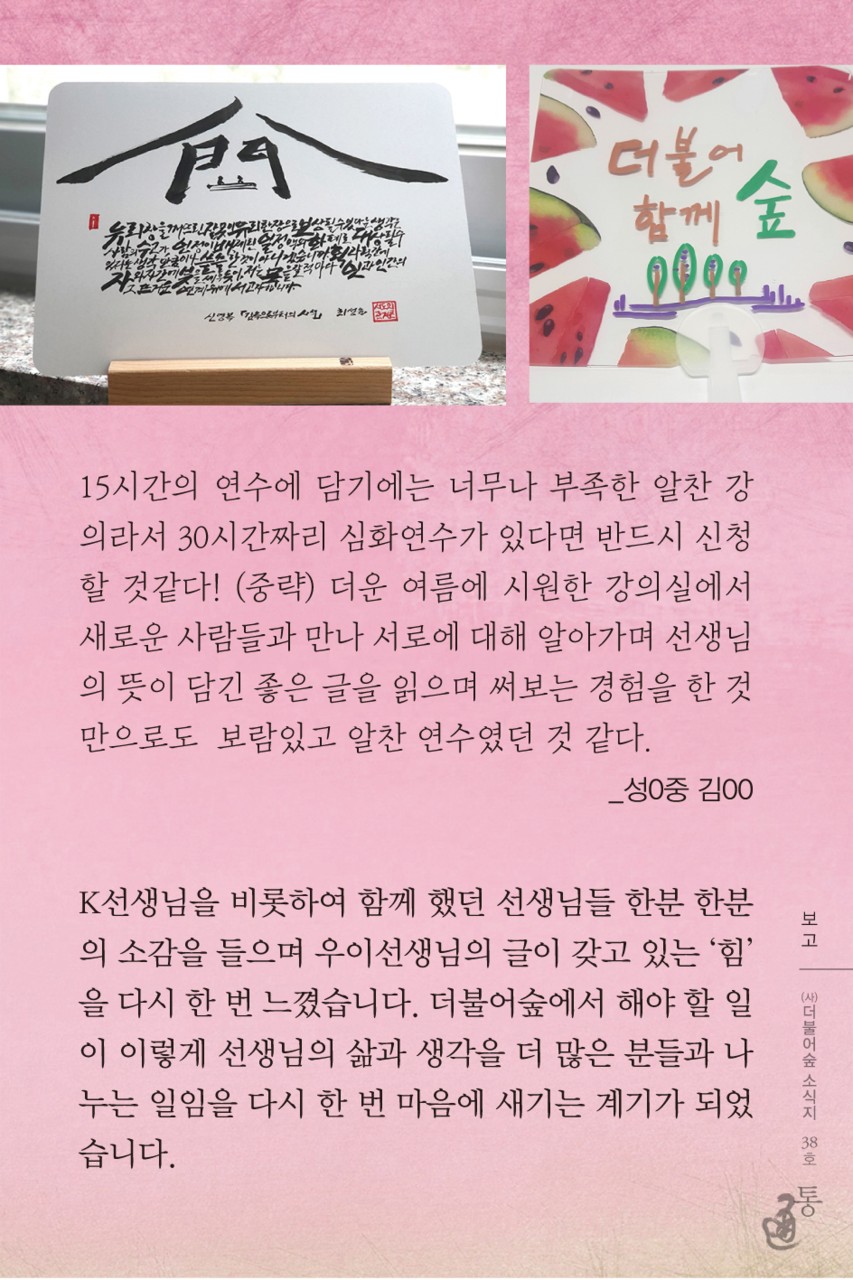 더불어
함께 숲
신영복 「감옥으로부터의 사색」
15시간의 연수에 담기에는 너무나 부족한 알찬 강
의라서 30시간짜리 심화연수가 있다면 반드시 신청
할 것같다! (중략) 더운 여름에 시원한 강의실에서
새로운 사람들과 만나 서로에 대해 알아가며 선생님
의 뜻이 담긴 좋은 글을 읽으며 써보는 경험을 한 것
만으로도 보람있고 알찬 연수였던 것 같다.
_성0중 김00
K선생님을 비롯하여 함께 했던 선생님들 한분 한분
의 소감을 들으며 우이선생님의 글이 갖고 있는 ‘힘’
을 다시 한 번 느꼈습니다. 더불어숲에서 해야 할 일
이 이렇게 선생님의 삶과 생각을 더 많은 분들과 나
누는 일임을 다시 한 번 마음에 새기는 계기가 되었
습니다.
보고
(사)더불어숲 소식지 38호
통
通